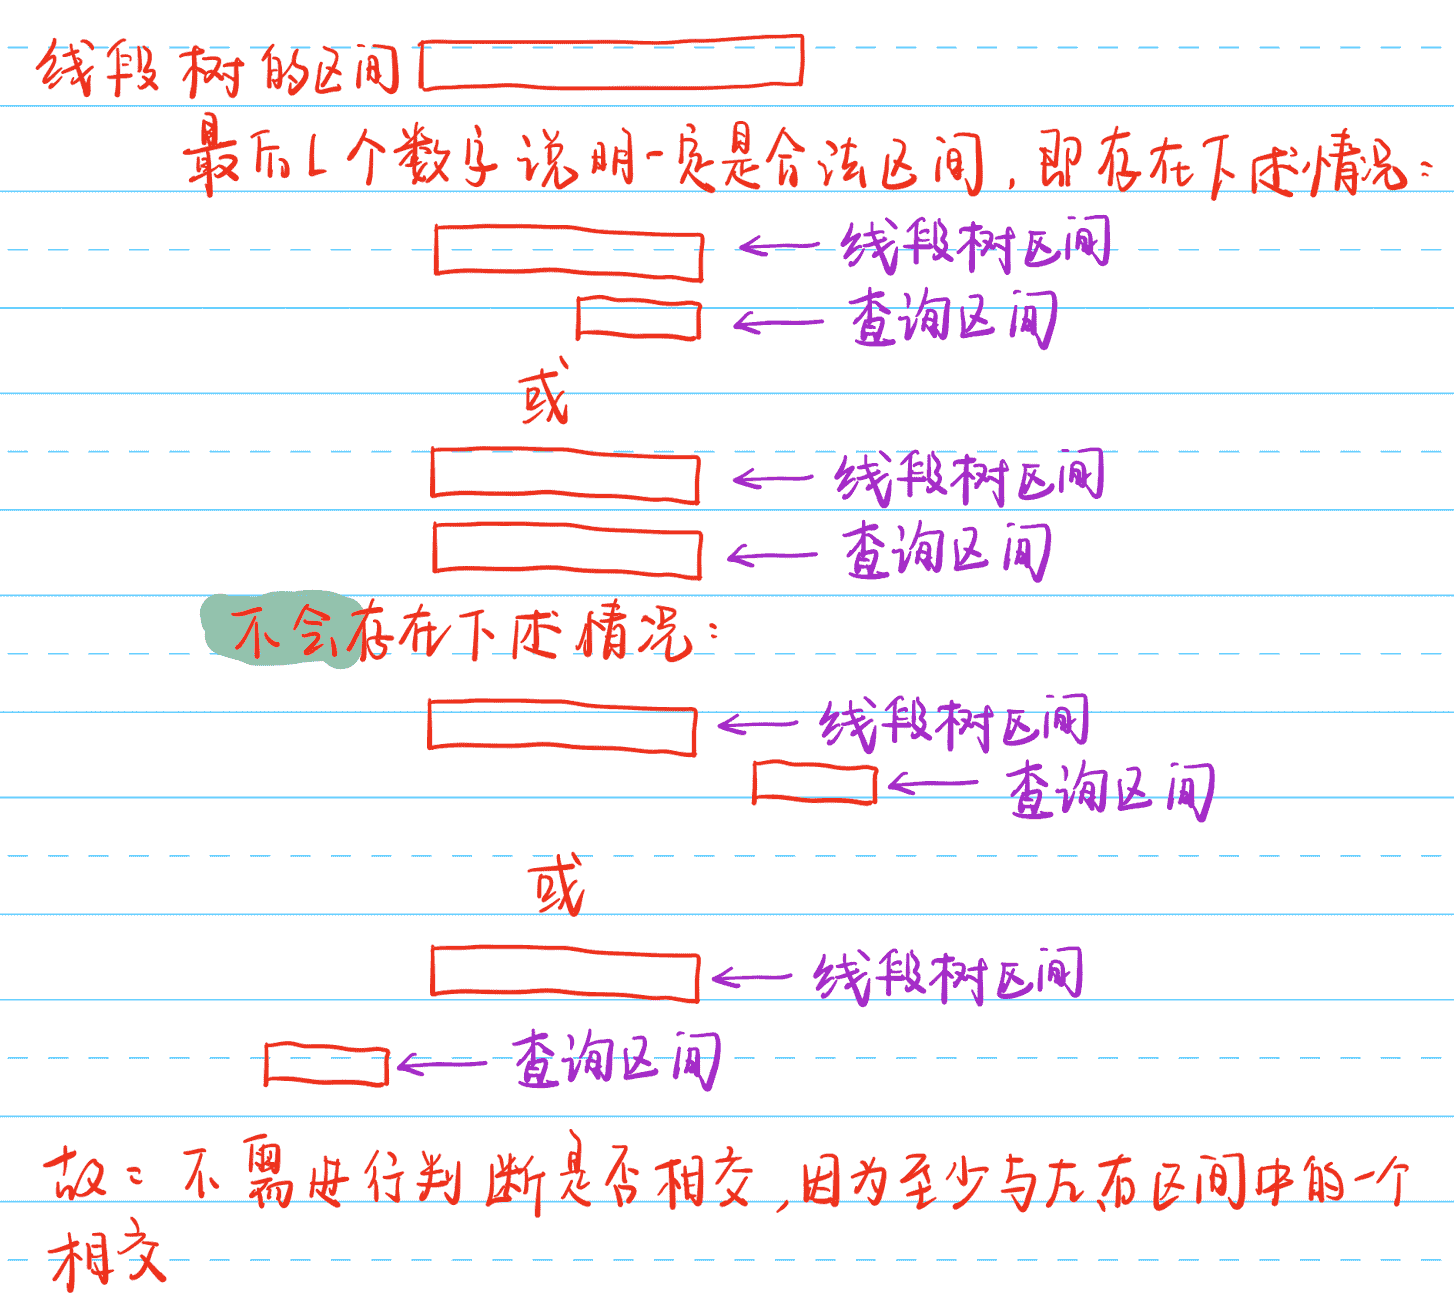 线段树的区间
最后L个数字说明一定是合法区间，即存在下述情况：
← 线段树区间
← 查询区间
或
← 线段树区间
← 查询区间
不会存在下述情况：
← 线段树区间
← 查询区间
或
← 线段树区间
← 查询区间
故：不需进行判断是否相交，因为至少与左右区间中的一个
相交